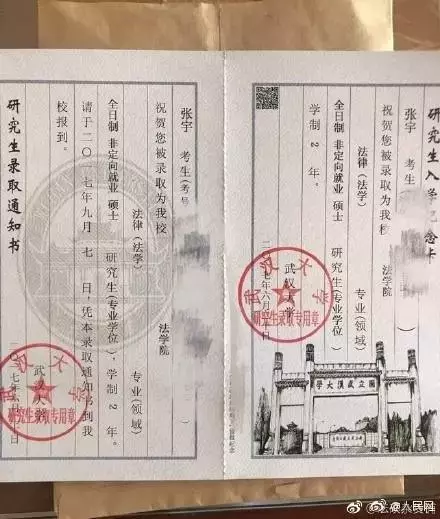 研究生入学纪念卡
张宇 考生
祝贺您被录取为我校 法学院
法律(法学) 专业(领域)
全日制 非定向就业 硕士 研究生(专业学位)
学制 2 年。
武汉大学
二〇一七年六月
武汉大学
研究生录取专用章
国立武汉大学
张宇 考生(考号
祝贺您被录取为我校 法学院
法律(法学) 专业(领域)
全日制 非定向就业 硕士 研究生(专业学位)，学制 2 年。
请于二〇一七年九月 七 日，凭本录取通知书到我
校报到。
研究生录取通知书
武汉大学
武汉大学
研究生录取专用章
@人民网